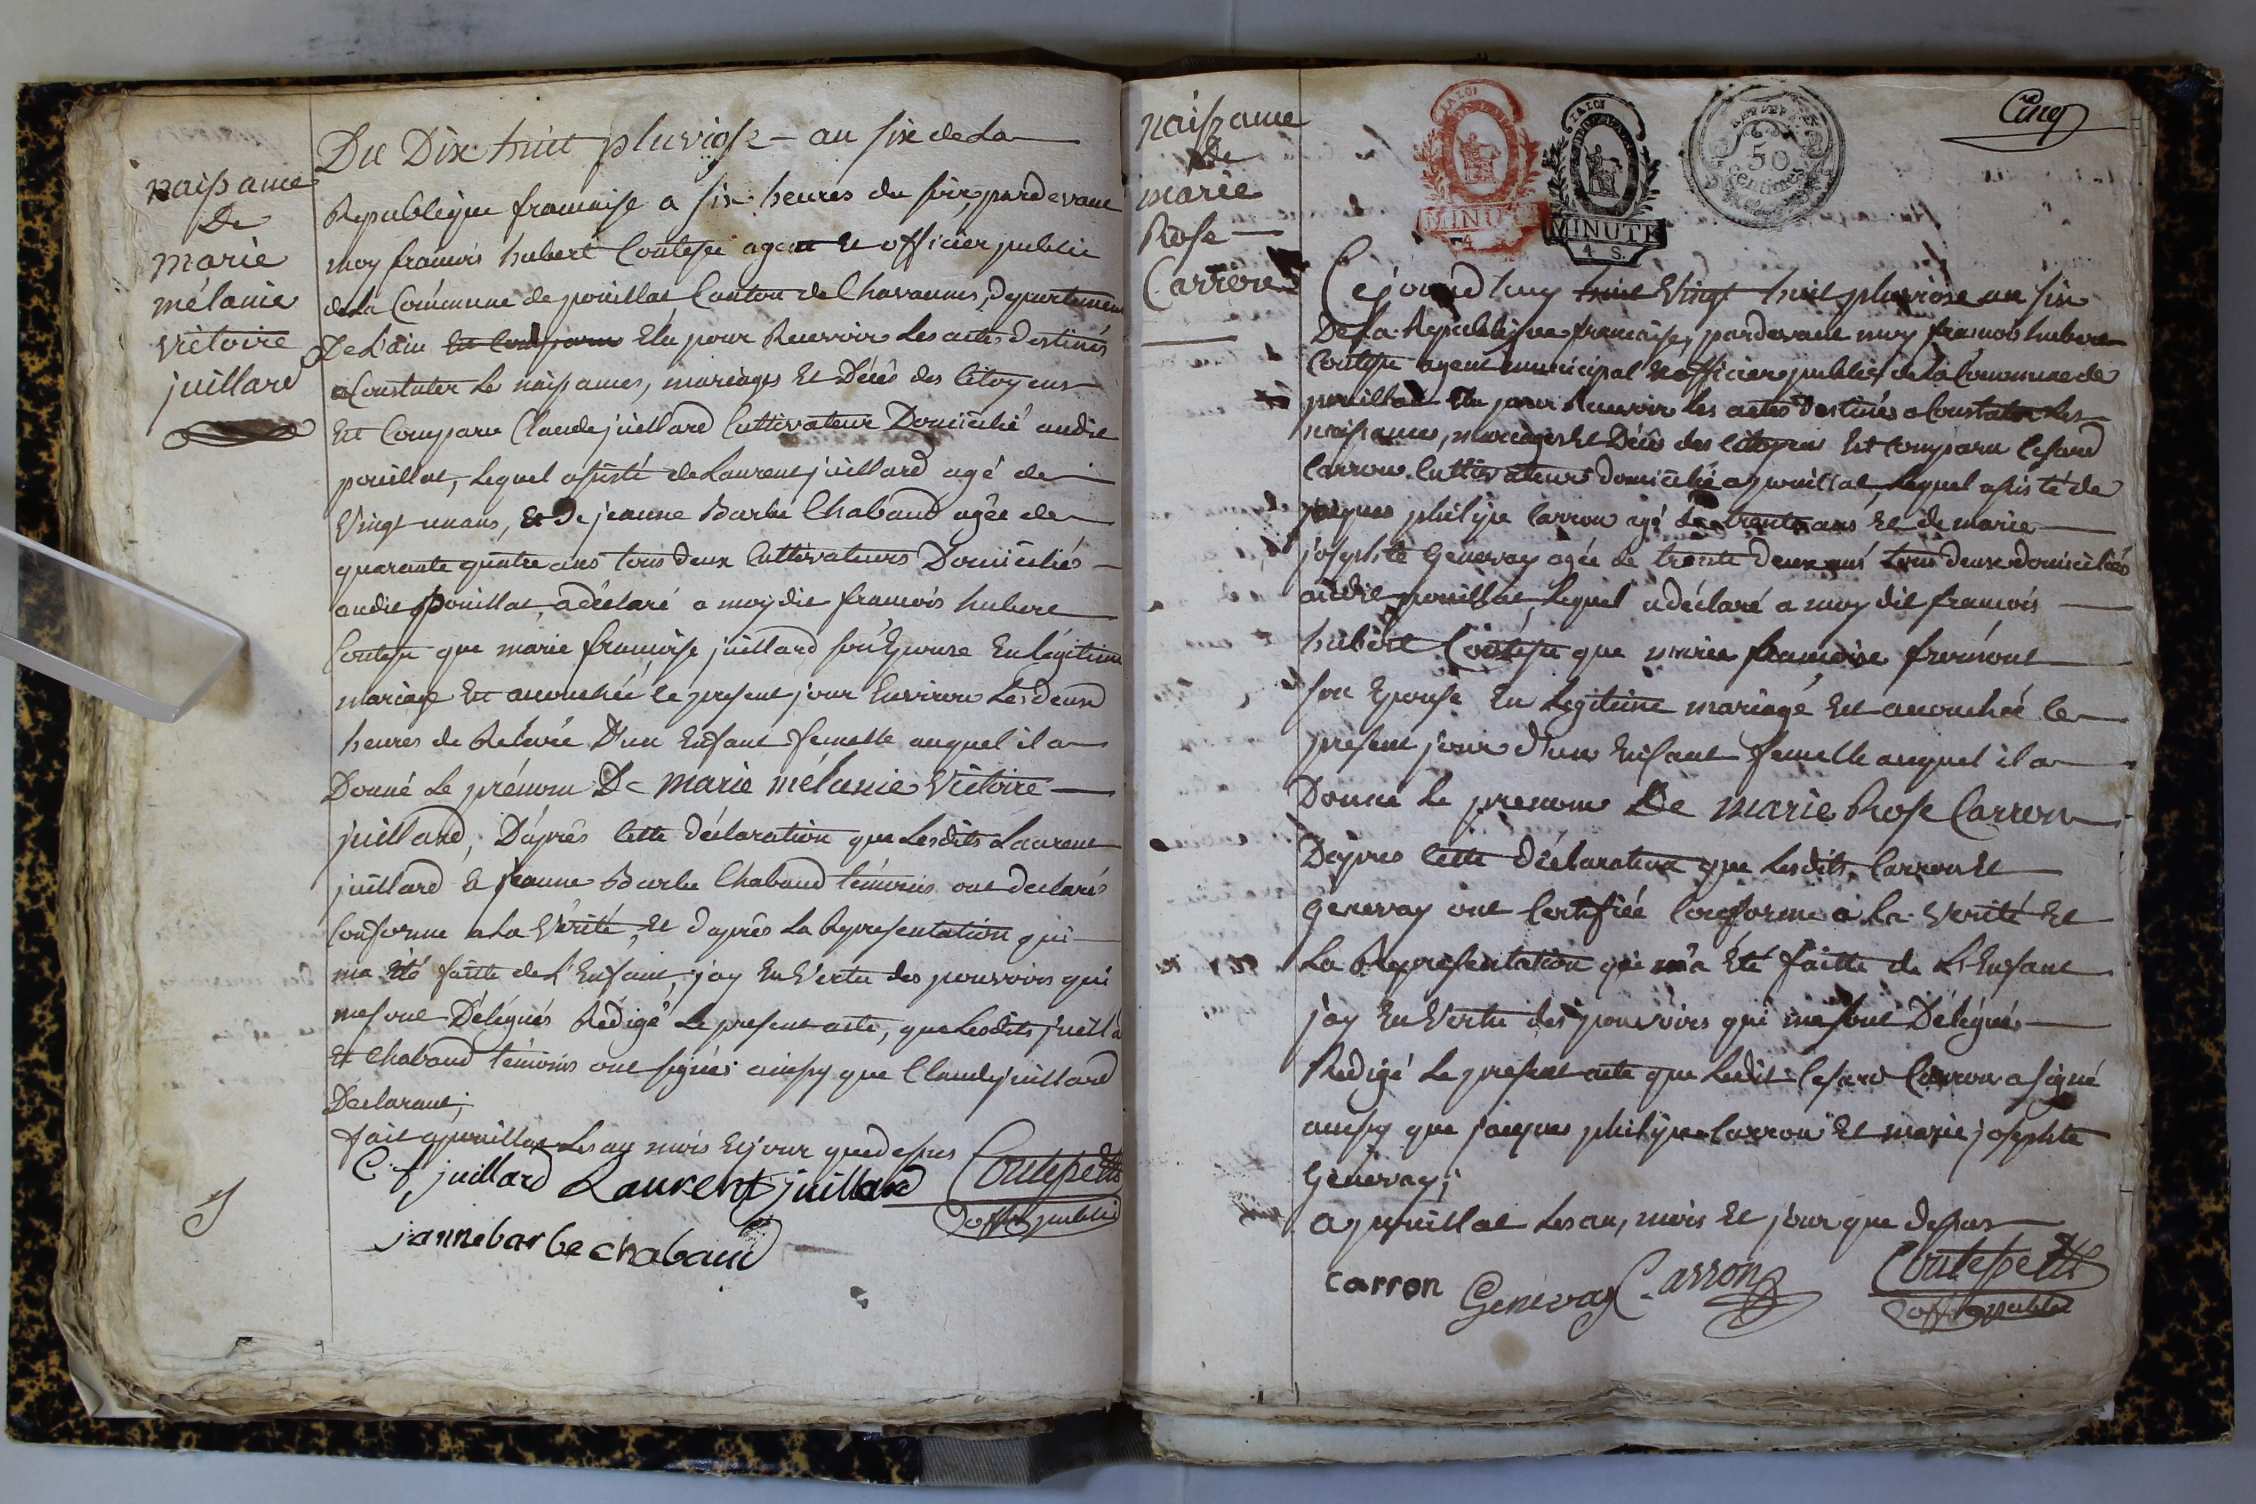 naissance
De
marie
mélanie
victoire
juillard
Du Dix huit pluviose - an six de La
Republique francaise a six heures du soir, pardevant
moy francois hubert Coutepee agent et officier public
de la Commune de pouillat Canton de Chavannes, departement
De L'ain Elu pour Recevoir Les actes destinés
a Constater Le naissances, mariages et Décès des Citoyens
Est Comparu Claude juillard Cultivateur Domicilié audit
pouillat, Lequel assisté de Laurent juillard agé de
vingt un ans, et De jeanne Barbe Chabaud agée de
quarante quatre ans tous deux Cultivateurs Domiciliés
audit pouillat, a déclaré a moy dit francois hubert
que marie francoise juillard son Epouse En légitime
mariage Est accouchée le present jour Environ Les deux
heures de Relevée D'un Enfant femelle auquel il a
Donné Le prénom De marie mélanie Victoire
juillard, D'après Cette déclaration que Lesdits Laurent
juillard et jeanne Barbe Chabaud témoins ont declarés
Conforme a La Vérité, Et d'après La Representation qui
ma Eté faitte de L'Enfant, j'ay En Vertu des pouvoirs qui
me sont Délégués Rédigé Le present acte, que Lesdits
Et Chabaud témoins ont signés ainsy que Claude juillard
Declarant;
fait a pouillat Les an mois Et jour que dessus
C f juillard Laurent juillard
offi public
janne barbe chabaud
Cinq
LA LOI
MINUTE
LA LOI
MINUTE
4 S.
50
centimes
naissance
de
marie
Rose
Carron
Cejourd huy vingt huit pluviose an six
De La Republique francaise, pardevant moy francois hubert
agent municipal et officier public de la Commune de
pouillat Elu pour Recevoir les actes destinés a Constater Les
naissances, mariages Et Décès des Citoyens Est comparu Cesard
Carron Cultivateur domicilié a pouillat, Lequel assisté de
jacques philipe Carron agé de trente ans Et de marie
josephte Genevay agée de trente deux ans tous deux domiciliés
audit pouillat, Lequel a déclaré a moy dit francois
hubert que marie francoise fromont
son Epouse En Legitime mariage Est accouchée le
present jour d'un Enfant femelle auquel il a
Donné Le prenom De marie Rose Carron
D'apres Cette déclaration que Lesdits Carron Et
Genevay ont Certifiée Conforme a La Verité Et
La Representation qui m'a Eté faitte de L'Enfant
j'ay En Vertu des pouvoirs qui me sont Délégués
Redigé Le present acte que Ledit Cesard Carron a signé
ainsy que jacques philipe Carron Et marie josephte
Genevay;
a pouillat Les an, mois Et jour que dessus
carron Genevay Carron
offi public